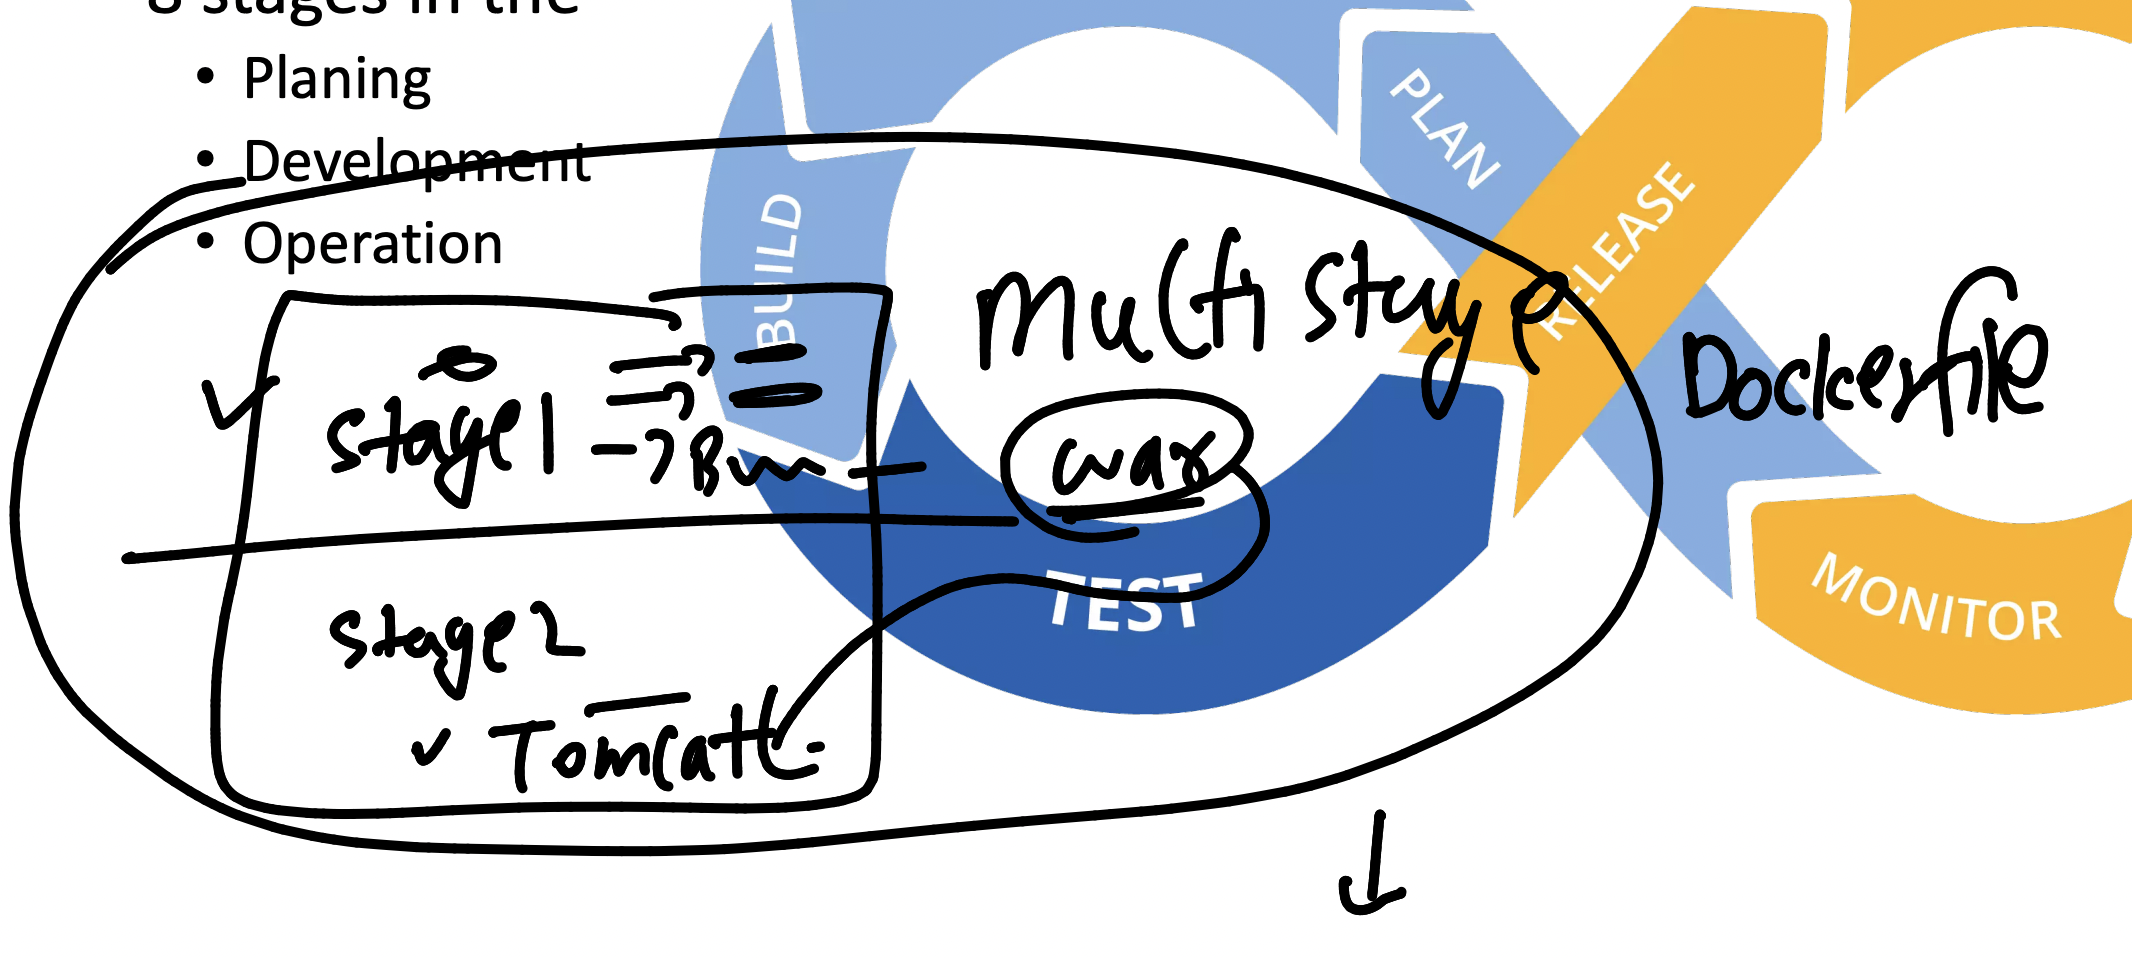 8 stages in the
• Planing
• Development
• Operation
BUILD
PLAN
RELEASE
TEST
MONITOR
Multi Stage
Dockerfile
Stage 1
war
Stage 2
✓ Tomcat